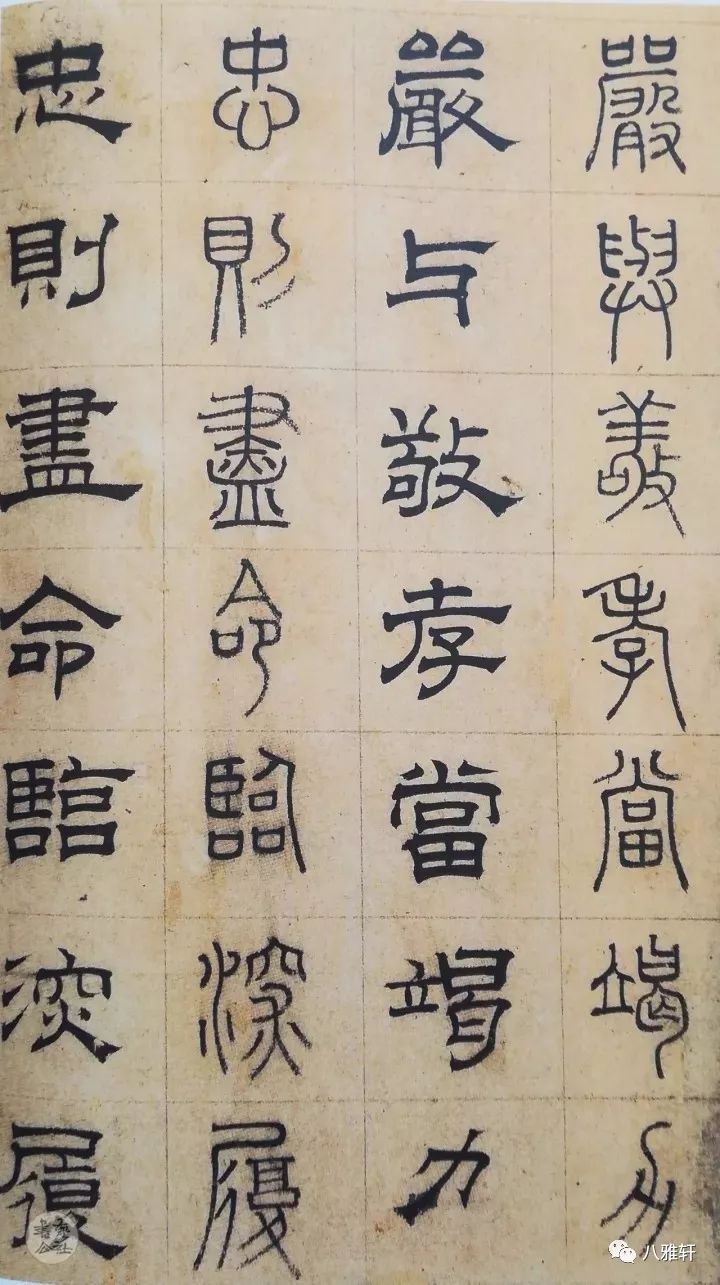 嚴與敬孝當竭力
嚴与敬孝當竭力
忠則盡命臨深履
忠則盡命臨深履
八雅轩